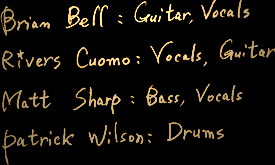 Brian Bell : Guitar, Vocals
Rivers Cuomo : Vocals, Guitar
Matt Sharp : Bass, Vocals
Patrick Wilson : Drums